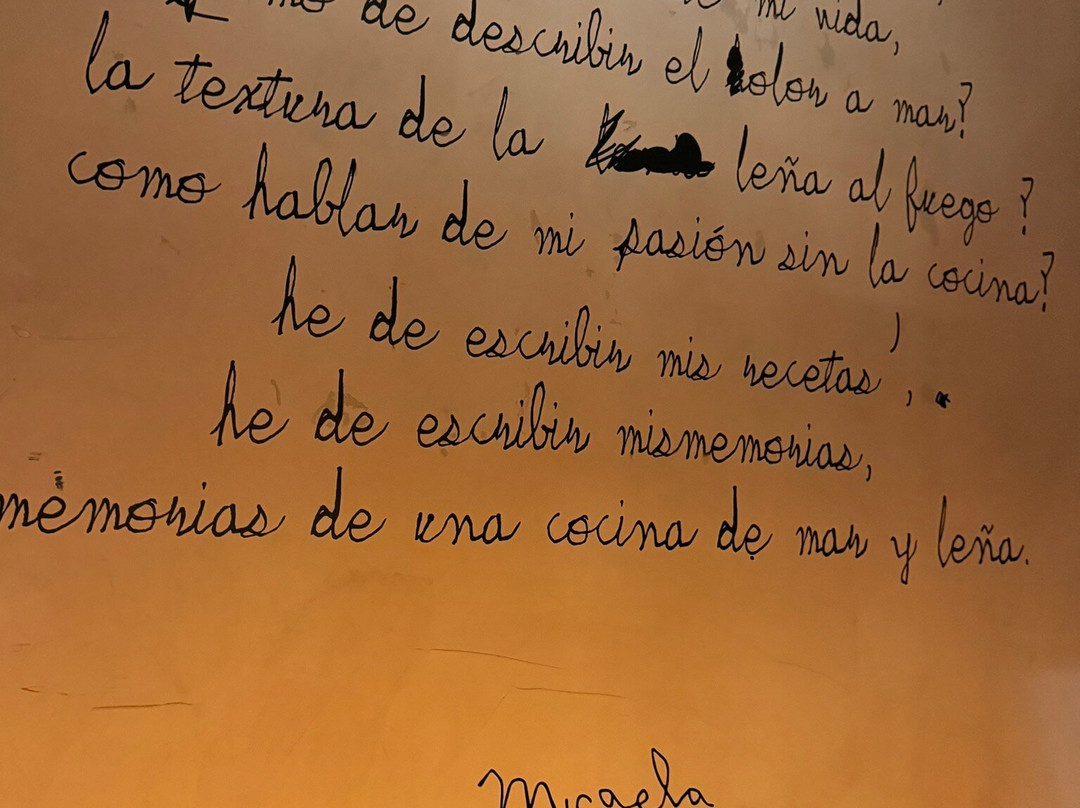 mi vida,
mo de describir el olor a mar?
la textura de la leña al fuego?
como hablar de mi pasión sin la cocina?
he de escribir mis recetas,
he de escribir mismemorias,
memorias de una cocina de mar y leña.
Micaela